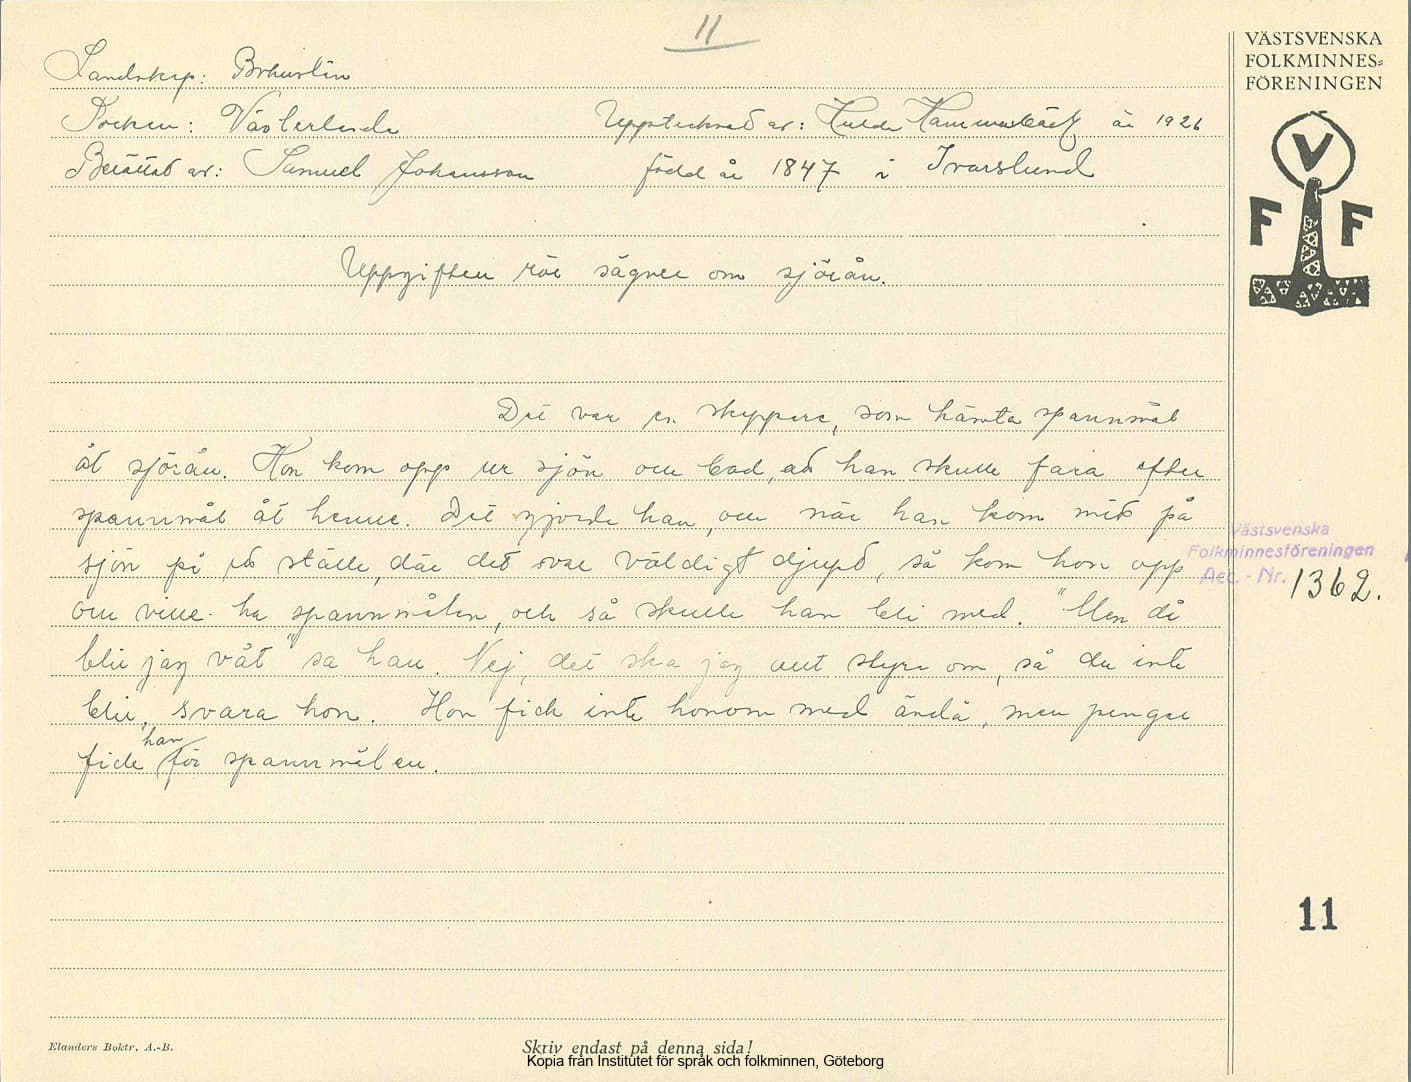 11
Landskap: Bohuslän
Socken: Västerlanda Upptecknat av: Hulda Hammarbäck år 1926
Berättat av: Samuel Johansson född år 1847 i Ivarslund
Uppgiften rör sägner om sjörån.
Det var en skeppare, som hämta spannmål
åt sjörån. Hon kom opp ur sjön och bad, att han skulle fara efter
spannmål åt henne. Det gjorde han, och när han kom mitt på
sjön på ett ställe, där det var väldigt djupt, så kom hon opp
och ville ha spannmålen, och så skulle han bli med. "Men då
blir jag våt" sa han. Nej, det ska jag nut styra om, så du inte
blir, svara hon. Hon fick inte honom med ändå, men pengar
fick han för spannmålen.
VÄSTSVENSKA
FOLKMINNES=
FÖRENINGEN
V
F F
Västsvenska
Folkminnesföreningen
Acc. - Nr. 1362.
11
Elanders Boktr. A.-B.
Skriv endast på denna sida!
Kopia från Institutet för språk och folkminnen, Göteborg